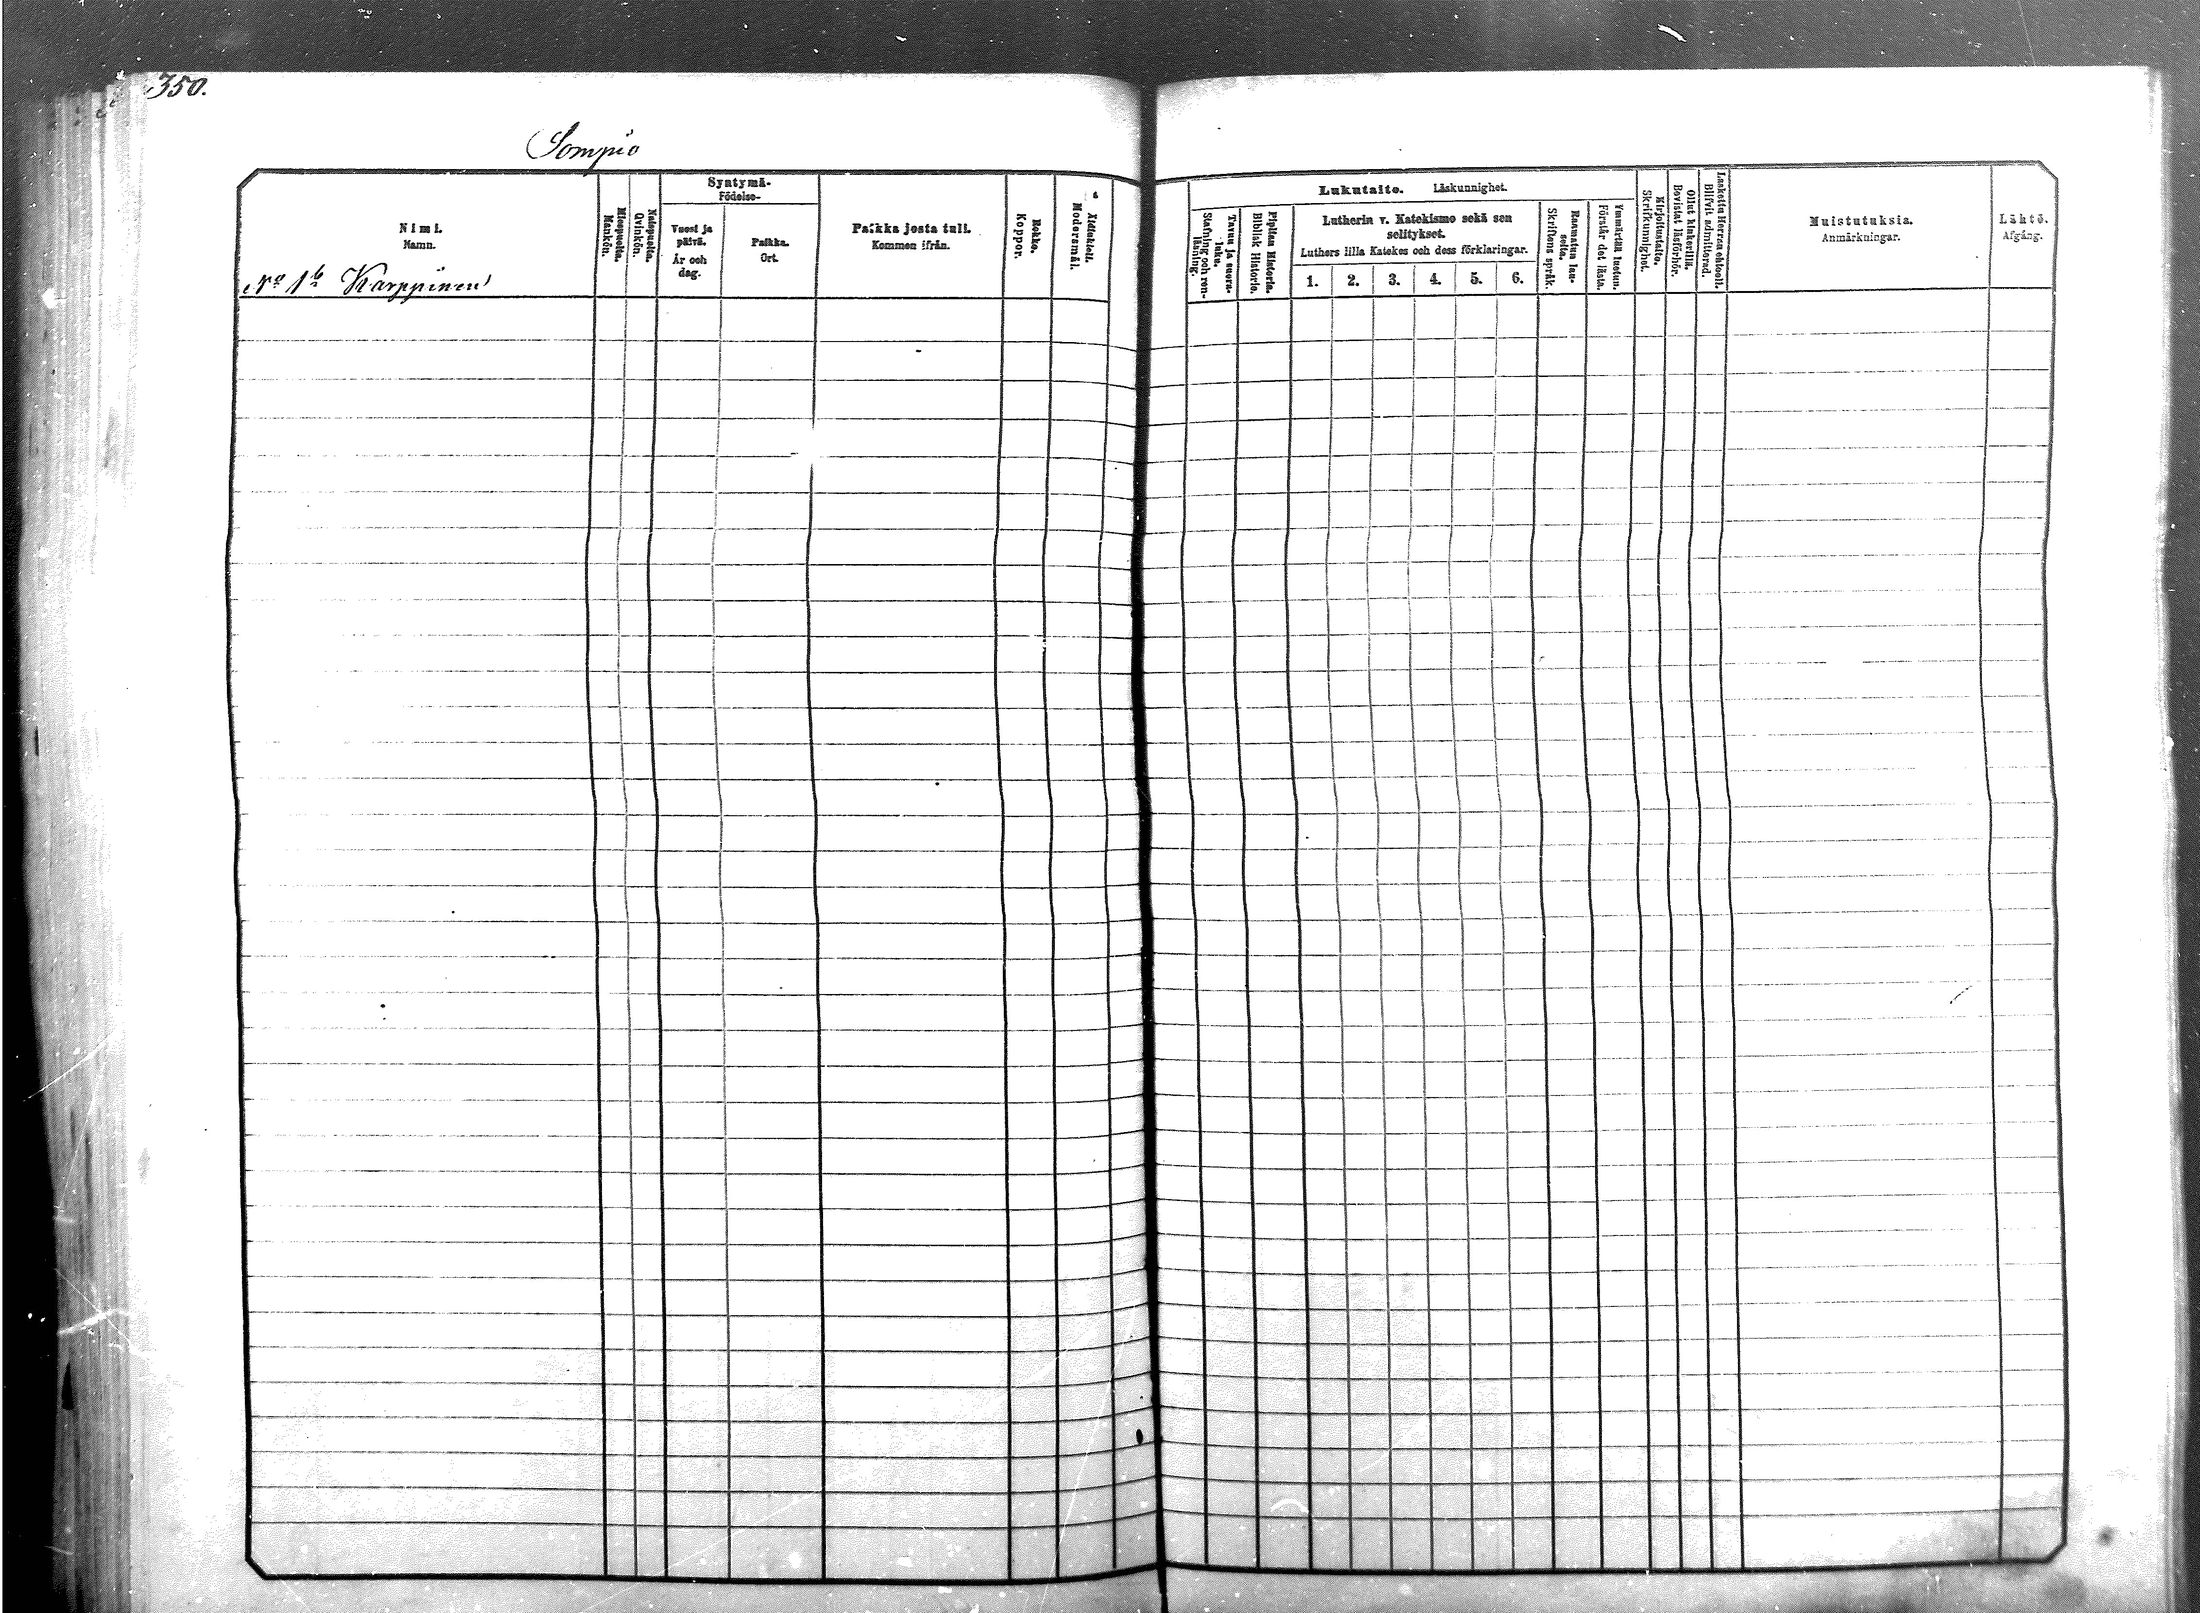 350.
Sompio
Nimi.
Namn.
No 1b Karppinen
Miespuolia.
Mankön.
Naispuolia.
Qvinkön.
Syntymä-
Födelse-
Vuosi ja
päivä.
År och
dag.
Paikka.
Ort.
Paikka josta tuli.
Kommen ifrån.
Rokko.
Koppor.
Äidinkieli.
Modersmål.
Lukutaito. Läskunnighet.
Tavuu ja suora-
luku.
Stafning och ren-
läsning.
Piplian Historia.
Biblisk Historie.
Lutherin v. Katekismo sekä sen
selitykset.
Luthers lilla Katekes och dess förklaringar.
1. 2. 3. 4. 5. 6.
Raamatun lau-
seita.
Skriftens språk.
Ymmärtää luetun.
Förstår det lästa.
Kirjoitustaito.
Skrifkunnighet.
Ollut kinkerillä.
Bevistat läsförhör.
Laskettu Herran ehtooll.
Blifvit admitterad.
Muistutuksia.
Anmärkningar.
Lähtö.
Afgång.